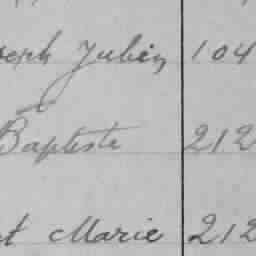 seph Jubin, 104
Baptiste 212
t Marie 212